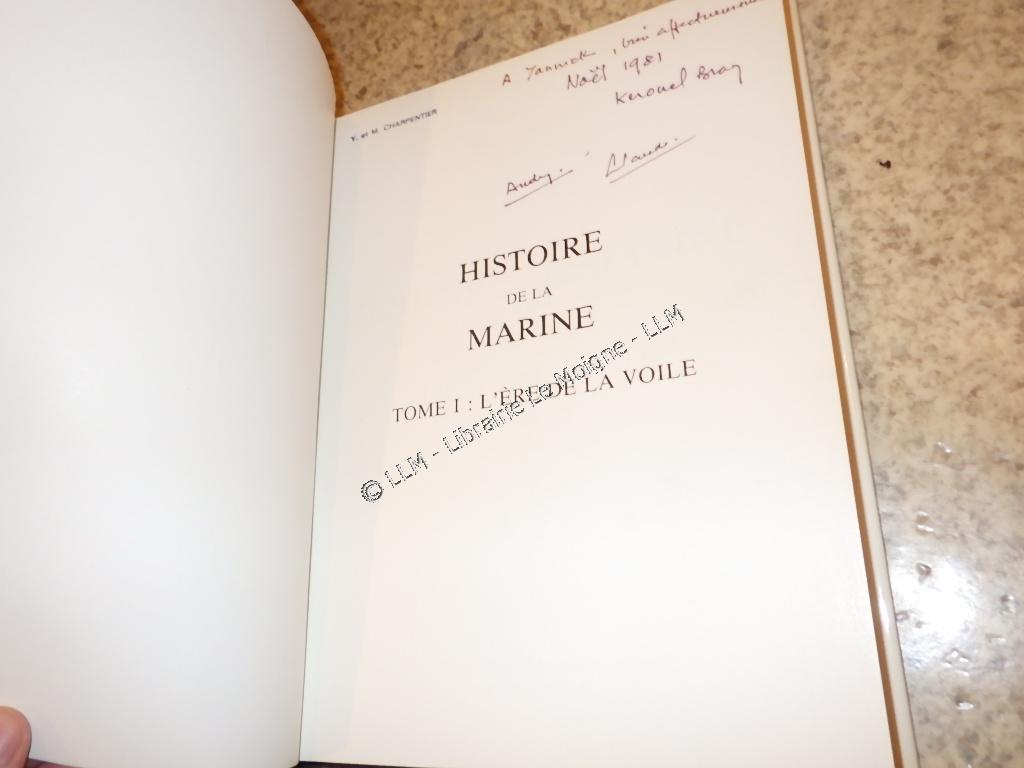 A Yannick, bien affectueusement
Noël 1981
Kerouel Bray
Y. et M. CHARPENTIER
Andrée. Claude.
HISTOIRE
DE LA
MARINE
TOME I : L'ÈRE DE LA VOILE
© LLM - Librairie Le Moigne - LLM